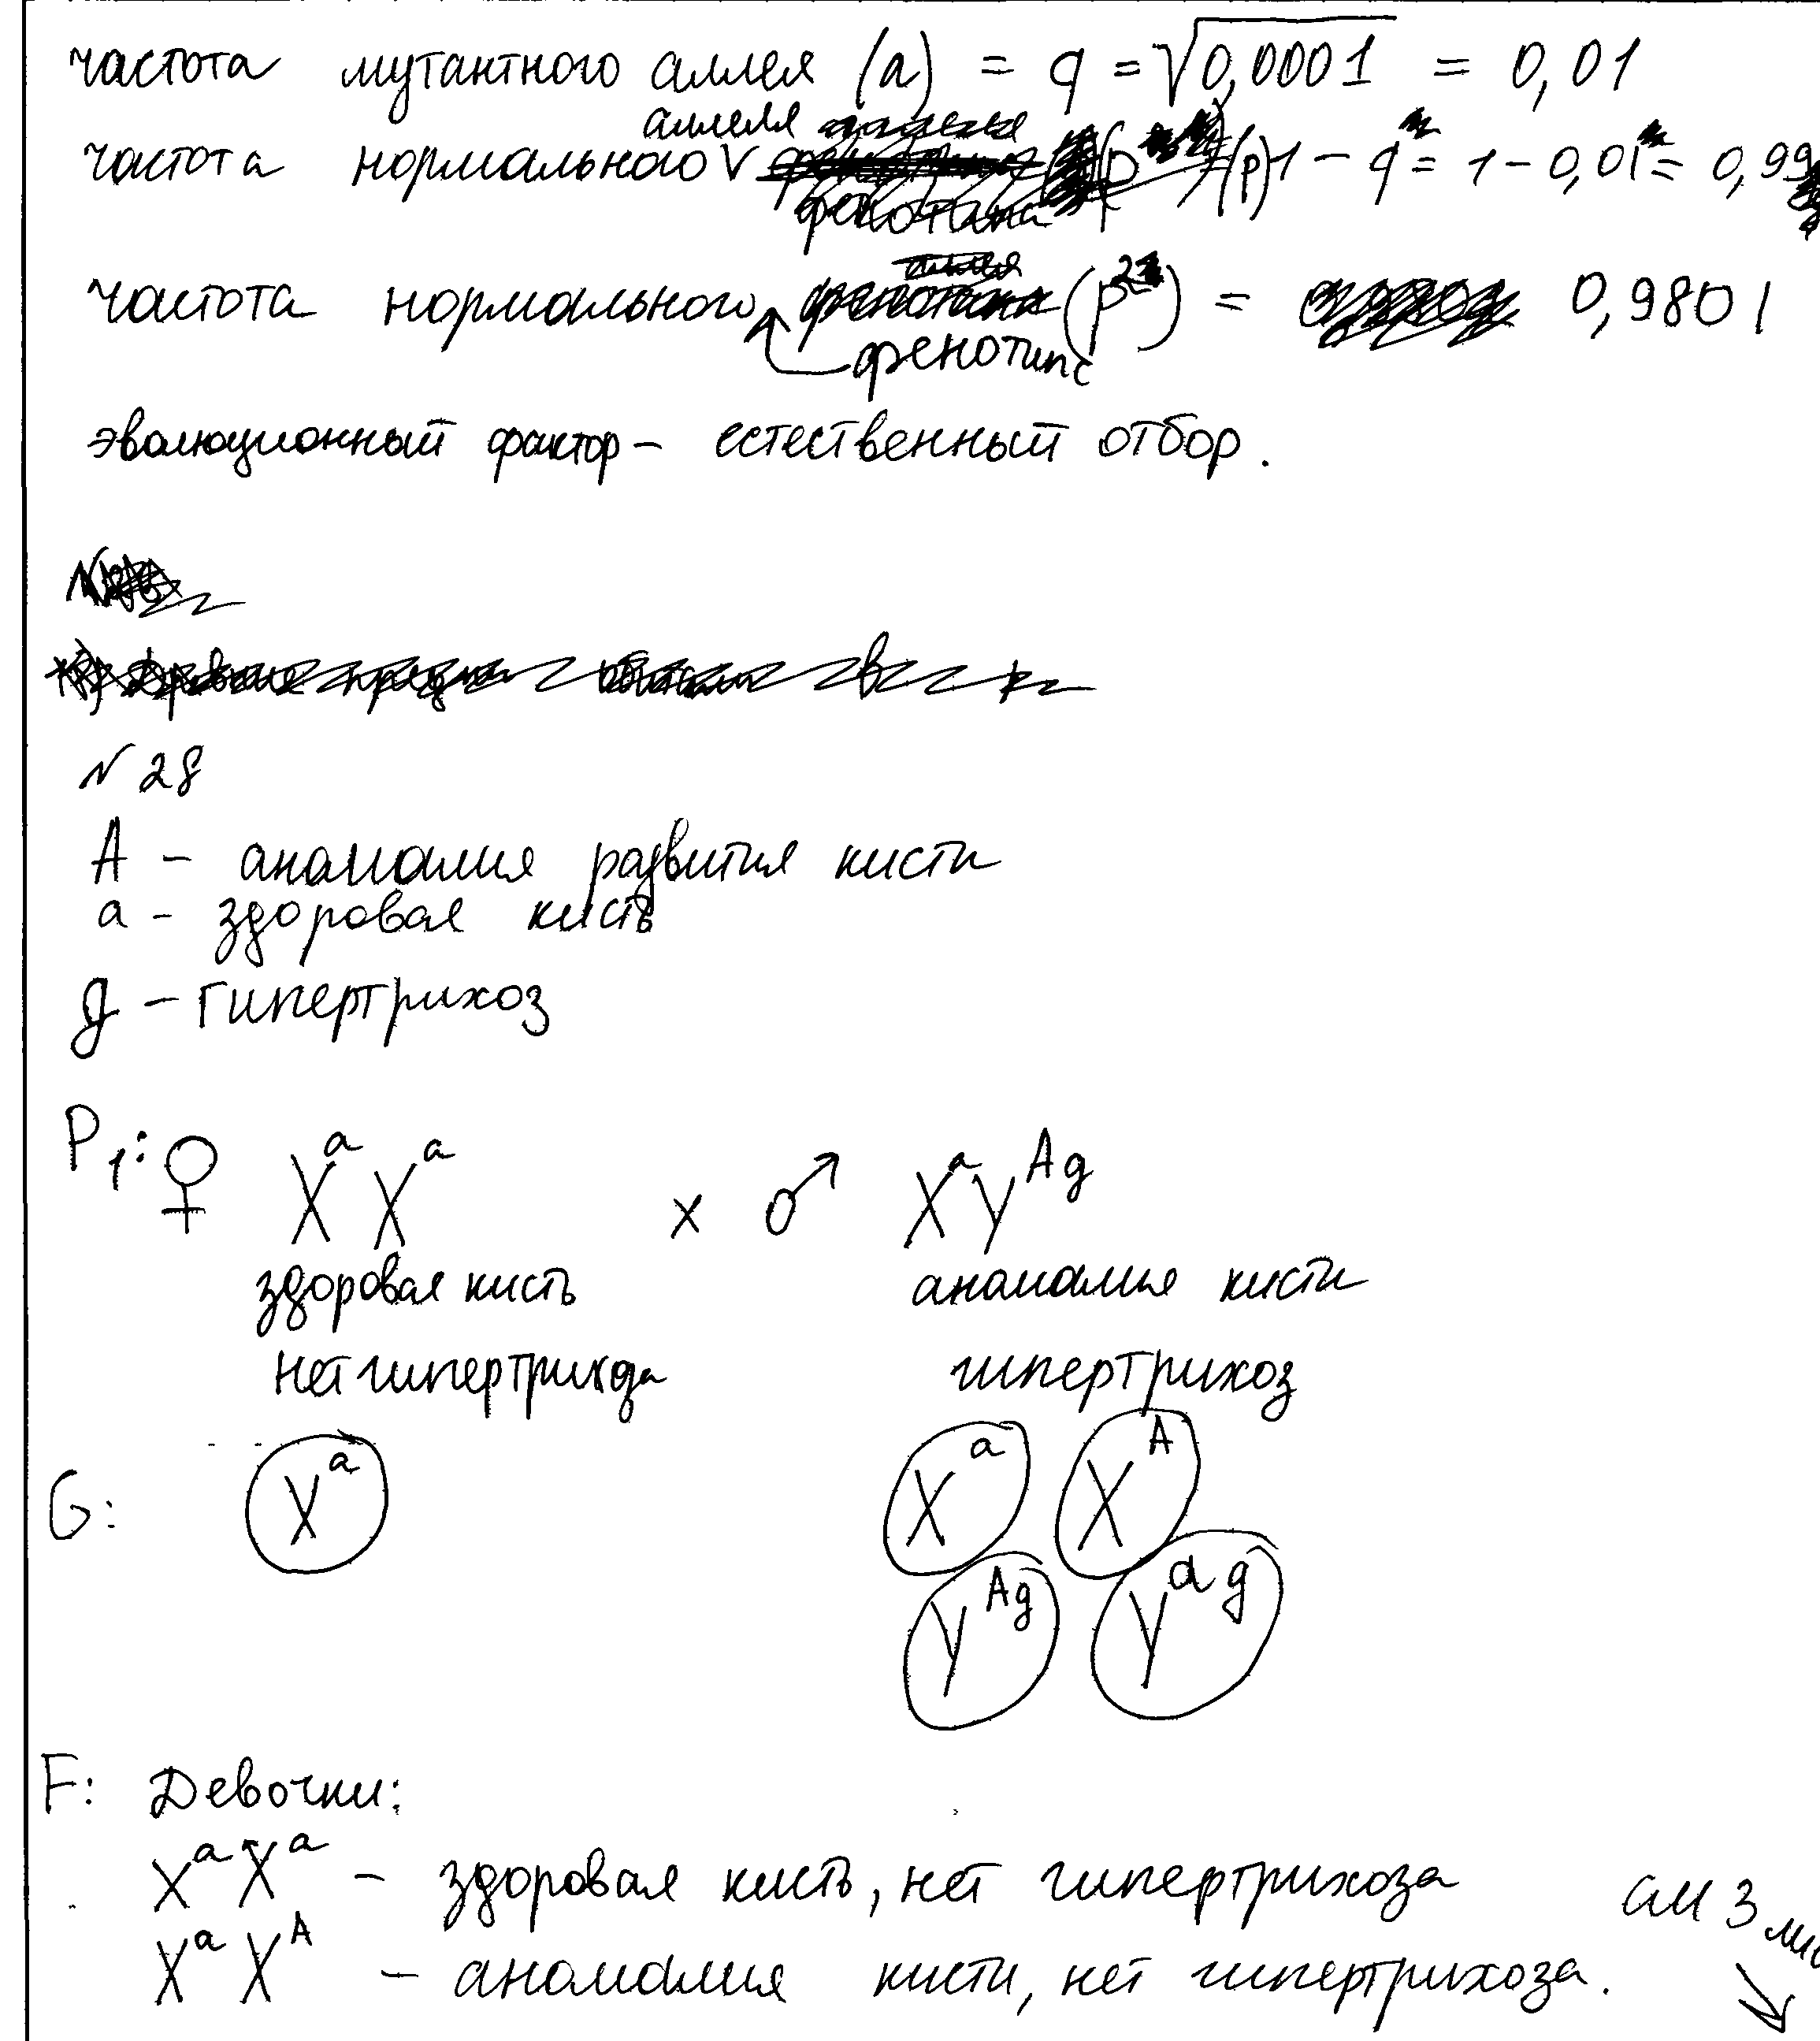 частота мутантного аллея (a) = q = √0,0001 = 0,01
аллеля
частота нормального V (p) 1 - q = 1 - 0,01 = 0,99
фенотипа
частота нормального (p²) = 0,9801
фенотипа
эволюционный фактор - естественный отбор.
N 28
A - аномалия развития кисти
a - здоровая кисть
g - гипертрихоз
P₁: ♀ XᵃXᵃ x ♂ XᵃYᴬᵍ
здоровая кисть аномалия кисти
нет гипертрихоза гипертрихоз
G: Xᵃ Xᵃ Xᴬ
Yᴬᵍ Yᵃᵍ
F: Девочки:
XᵃXᵃ - здоровая кисть, нет гипертрихоза
XᵃXᴬ - аномалия кисти, нет гипертрихоза.
см 3